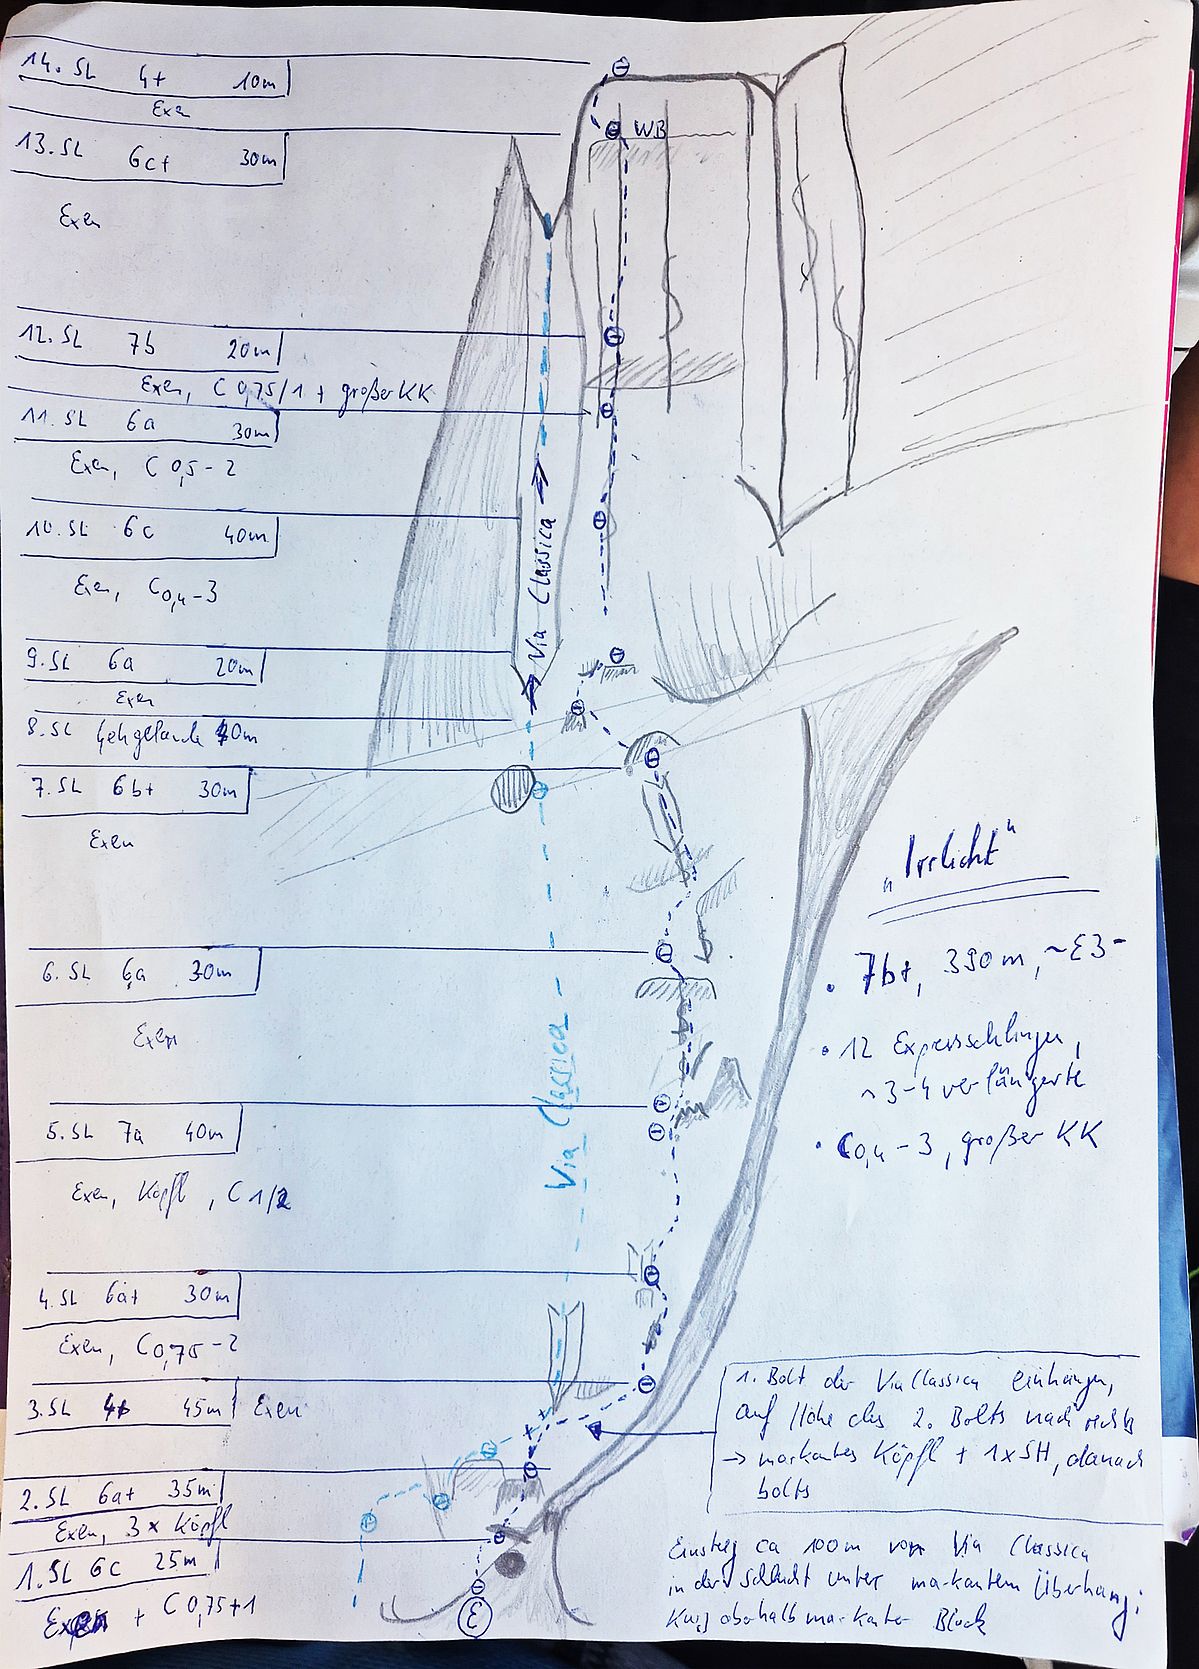 14. SL 4+ 10m
Exen
13. SL 6c+ 30m
Exen
12. SL 7b 20m
Exen, C 0,75/1 + großer KK
11. SL 6a 30m
Exen, C 0,5-2
10. SL 6c 40m
Exen, C 0,4-3
9. SL 6a 20m
Exen
8. SL Gehgelände 0m
7. SL 6b+ 30m
Exen
6. SL 6a 30m
Exen
5. SL 7a 40m
Exen, Köpfl, C 1/2
4. SL 6a+ 30m
Exen, C 0,75-2
3. SL 45m Exen
2. SL 6a+ 35m
Exen, 3x Köpfl
1. SL 6c 25m
Exen + C 0,75+1
WB
Via Classica
Via Classica
E
„Irrlicht"
• 7b+, 390m, ~E3-
• 12 Expressschlingen,
~3-4 verlängerte
• C 0,4-3, großer KK
1. Bolt der Via Classica einhängen,
auf Höhe des 2. Bolts nach rechts
→ markantes Köpfl + 1x SH, danach
bolts
Einstieg ca 100m von Via Classica
in der Schlucht unter markantem Überhang;
Kurz oberhalb markanter Block